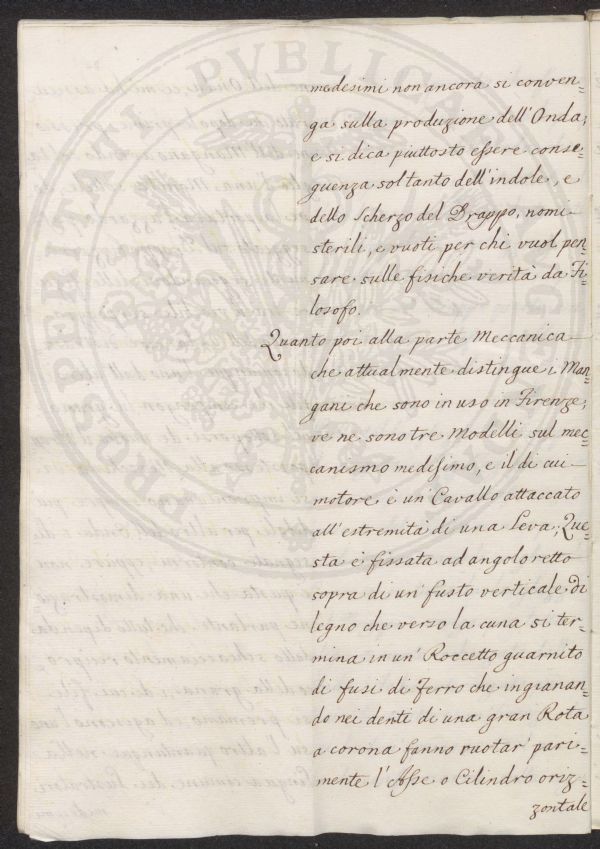 medesimi non ancora si conven=
ga sulla produzione dell'Onda;
e si dica piuttosto essere conse=
guenza soltanto dell'indole, e
dello scherzo del Drappo, nomi
sterili, e vuoti per chi vuol pen=
sare sulle fisiche verità da Fi=
losofo.
Quanto poi alla parte Meccanica
che attualmente distingue i Man=
gani che sono in uso in Firenze;
ve ne sono tre Modelli sul mec=
canismo medesimo, e il di cui
motore è un Cavallo attaccato
all'estremità di una Leva; Que=
sta è fissata ad angolo retto
sopra di un' fusto verticale di
legno che verso la cuna si ter=
mina in un' Roccetto guarnito
di fusi di Ferro che ingranan=
do nei denti di una gran Rota
a corona fanno ruotar' pari=
mente l'Asse o Cilindro oriz=
zontale
PROSPERITATI PUBLICAE